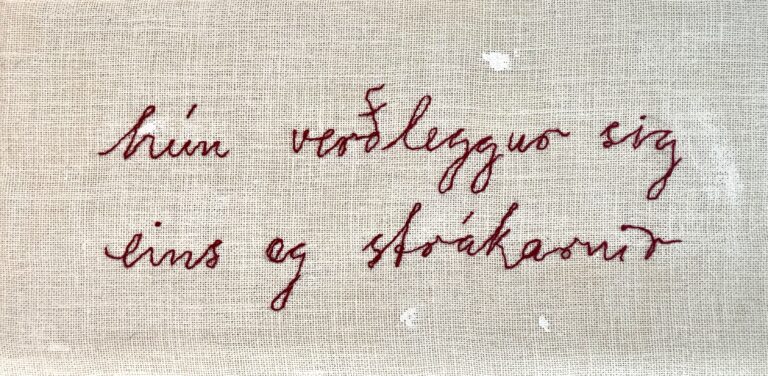 hún verðleggur sig
eins og strákarnir